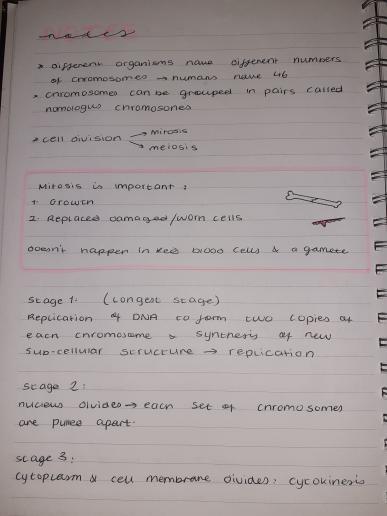 notes
* Different organisms have different numbers
of chromosomes → humans have 46
* chromosomes can be grouped in pairs called
homologus chromosomes
* cell division → mitosis
→ meiosis
Mitosis is important :
1. Growth
2. Replaced damaged/worn cells
Doesn't happen in Red blood cells & a gamete
Stage 1: (Longest stage)
Replication of DNA to form two copies of
each chromosome & synthesis of new
sub-cellular structure → replication
stage 2:
nucleus divides → each set of chromosomes
are pulled apart.
stage 3:
cytoplasm & cell membrane divides: cycokinesis